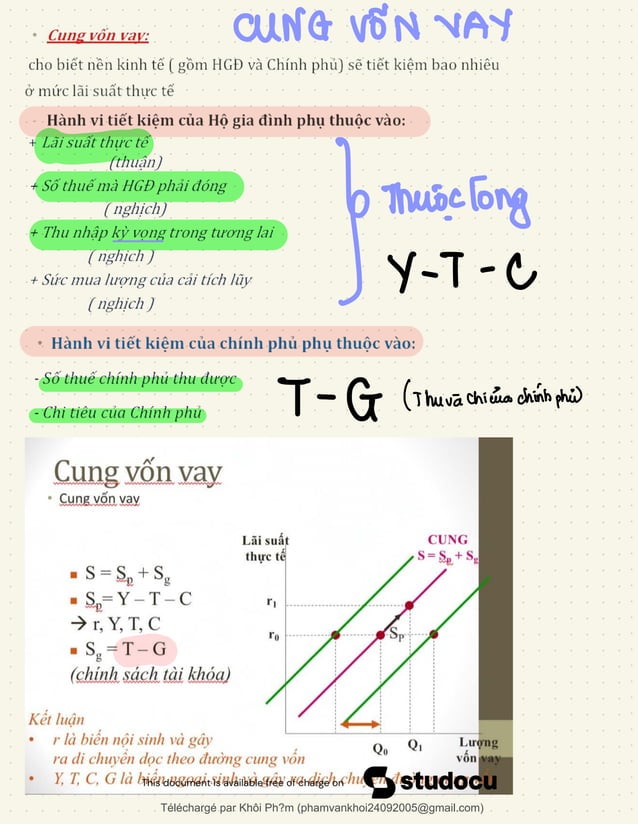 • Cung vốn vay:
CUNG VỐN VAY
cho biết nền kinh tế ( gồm HGĐ và Chính phủ) sẽ tiết kiệm bao nhiêu
ở mức lãi suất thực tế
- Hành vi tiết kiệm của Hộ gia đình phụ thuộc vào:
+ Lãi suất thực tế
(thuận)
+ Số thuế mà HGĐ phải đóng
( nghịch)
+ Thu nhập kỳ vọng trong tương lai
( nghịch )
+ Sức mua lượng của cải tích lũy
( nghịch )
Thuộc lòng
Y-T-C
• Hành vi tiết kiệm của chính phủ phụ thuộc vào:
- Số thuế chính phủ thu được
- Chi tiêu của Chính phủ
T-G (Thu và chi của chính phủ)
Cung vốn vay
• Cung vốn vay
■ S = Sp + Sg
■ Sp= Y – T – C
→ r, Y, T, C
■ Sg = T – G
(chính sách tài khóa)
Lãi suất
thực tế
CUNG
S = Sp + Sg
r1
r0
Sp
Q0
Q1
Lượng
vốn vay
Kết luận
• r là biến nội sinh và gây
ra di chuyển dọc theo đường cung vốn
• Y, T, C, G là biến ngoại sinh và gây ra dịch chuyển
This document is available free of charge on
studocu
Téléchargé par Khôi Ph?m (phamvankhoi24092005@gmail.com)